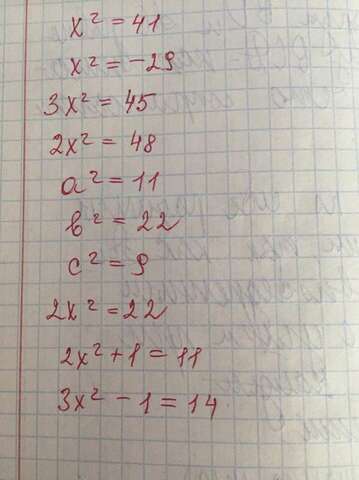 x² = 41
x² = -29
3x² = 45
2x² = 48
a² = 11
b² = 22
c² = 9
2x² = 22
2x² + 1 = 11
3x² - 1 = 14